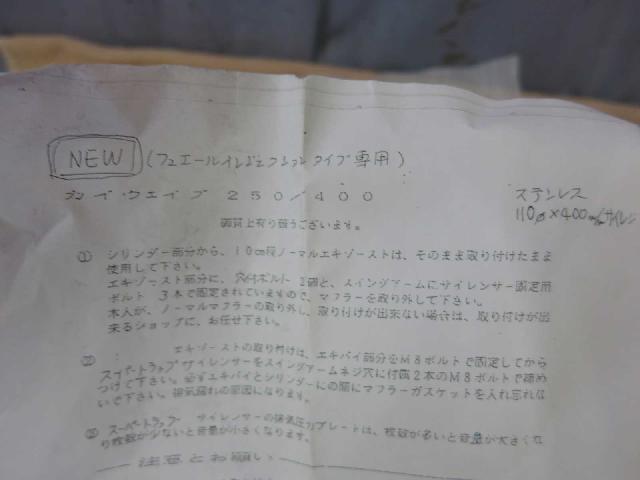 NEW (フューエルインジェクションタイプ専用)
グイ・ウエイブ 250/400
ステンレス
110φ×400m/mサイレン
お買上有り難うございます。
① シリンダー部分から、10cm程ノーマルエキゾーストは、そのまま取り付けたまま
使用して下さい。
エキゾースト部分に、穴付ボルト 2個と、スイングアームにサイレンサー固定用
ボルト 3本で固定されていますので、マフラーを取り外して下さい。
本人が、ノーマルマフラーの取り外し、取り付けが出来ない場合は、取り付けが出
来るショップに、お任せ下さい。
② エキゾーストの取り付けは、エキパイ部分をM8ボルトで固定してから
スーパートラップサイレンサーをスイングアームネジ穴に付属2本のM8ボルトで締め
つけて下さい。必ずエキパイとシリンダーにの間にマフラーガスケットを入れ忘れな
いで下さい。排気漏れの原因になります。
③ スーパートラップ サイレンサーの排気圧力プレートは、枚数が多いと音量が大きくな
り枚数が少ないと音量が小さくなります。
注意とお願い